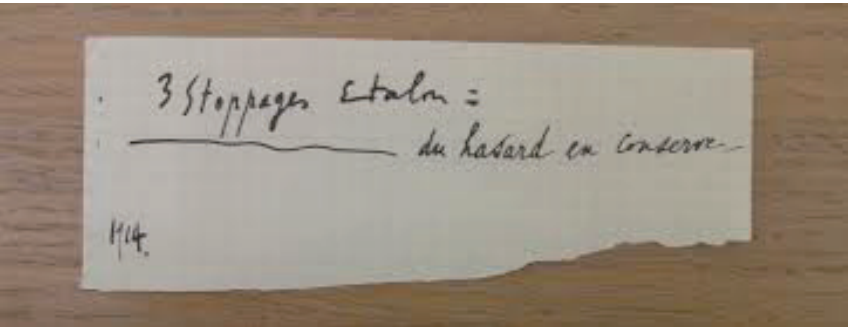 3 Stoppages Etalon =
du hasard en conserve
1914.